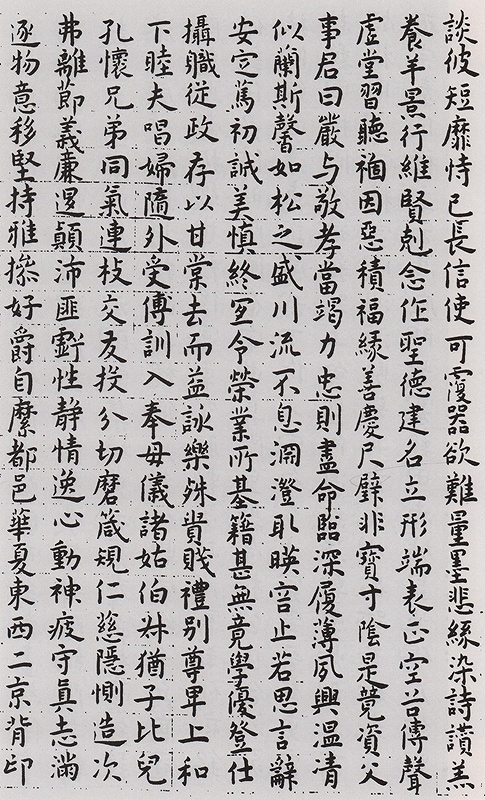 談彼短靡恃己長信使可覆器欲難量墨悲絲染詩讃羔
養羊景行維賢剋念作聖德建名立形端表正空谷傳聲
虛堂習聽禍因惡積福緣善慶尺璧非寶寸陰是競資父
事君曰嚴与敬孝當竭力忠則盡命臨深履薄夙興温凊
似蘭斯馨如松之盛川流不息淵澄取暎容止若思言辭
安定篤初誠美慎終宜令榮業所基籍甚無竟學優登仕
攝職從政存以甘棠去而益詠樂殊貴賤禮別尊卑上和
下睦夫唱婦隨外受傅訓入奉母儀諸姑伯叔猶子比兒
孔懷兄弟同氣連枝交友投分切磨箴規仁慈隱惻造次
弗離節義廉退顛沛匪虧性静情逸心動神疲守真志滿
逐物意移堅持雅操好爵自縻都邑華夏東西二京背邙